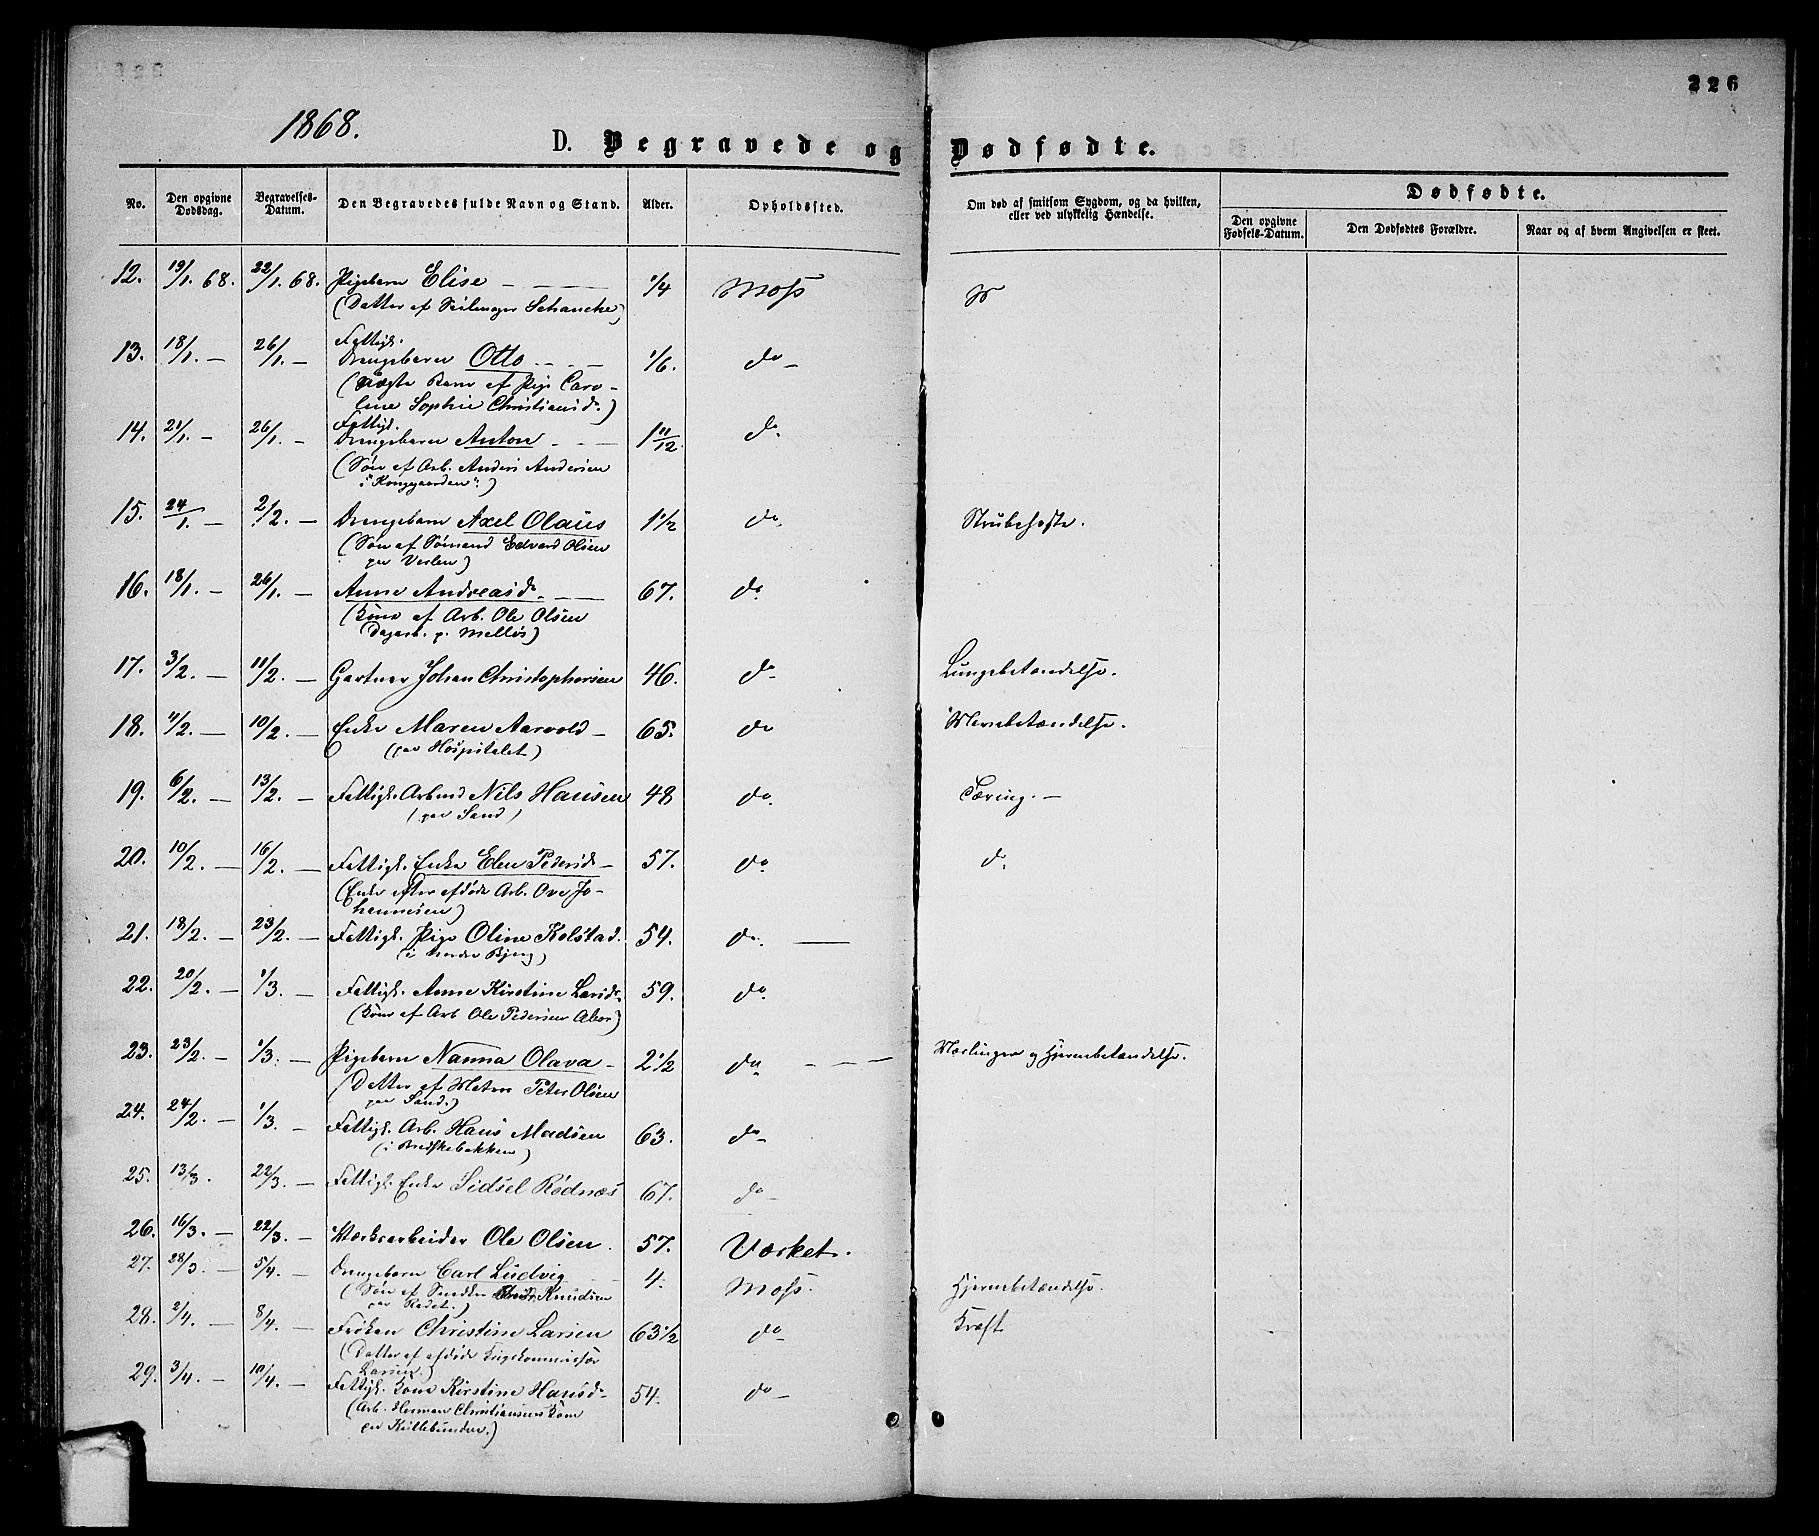 226
1868.
D. Begravede og Dødfødte.
No. Den opgivne Dødsdag. Begravelses-Datum. Den Begravedes fulde Navn og Stand. Alder. Opholdssted. Om død af smitsom Sygdom, og da hvilken, eller ved ulykkelig Hændelse. Dødfødte.
Den opgivne Fødsels-Datum. Den Dødfødtes Forældre. Naar og af hvem Angivelsen er skeet.
12. 19/1. 68. 22/1. 68. Pigebarn Elise 1/4 Moss
(Datter af Seilmager Schancke)
13. 18/1. — 26/1. — Fattigl. Drengebarn Otto 1/6. do
(uægte Barn af Pige Caro-
line Sophie Christiansd.)
14. 21/1. — 26/1. — Fattigl. Drengebarn Anton 1 11/12. do.
(Søn af Arb. Anders Andersen
i "Konggaarden")
15. 24/1. — 2/2. — Drengebarn Axel Olaus 1 1/2 do. Strubehoste.
(Søn af Sømand Edvard Olsen
paa Verlen)
16. 18/1. — 26/1. — Anne Andreasd. 67. do.
(Kone af Arb. Ole Olsen
Dagarb. p. Melløs)
17. 3/2. — 11/2. — Gartner Johan Christophersen 46. do Lungebetændelse.
18. 4/2. — 10/2. — Enke Maren Aarvold 65. do
(paa Hospitalet)
19. 6/2. — 13/2. — Fattigl. Arbmd Nils Hansen 48 do. Tæring. —
(paa Sand)
20. 10/2. — 16/2. — Fattigl. Enke Elen Pedersd. 57. do. do.
(Enke efter afdøde Arb. Ove Jo-
hannesen)
21. 18/2. — 23/2. — Fattigl. Pige Oline Kolstad. 54. do. —
(i Nordre Bjerg)
22. 20/2. — 1/3. — Fattigl. Anne Kirstine Larsd. 59. do.
(Kone af Arb Ole Pedersen)
23. 23/2. — 1/3. — Pigebarn Nanna Olava 2 1/2 do Mæslinger og Hjernebetændelse.
(Datter af Peter Olsen
paa Sand.)
24. 24/2. — 1/3. — Fattigl. Arb. Hans Madsen 63. do
(i Bredskebakken)
25. 13/3. 22/3. — Fattigl. Enke Sidsel Rødnæs 67. do
26. 16/3. — 22/3. — Værksarbeider Ole Olsen. 57. Værket.
27. 28/3. — 5/4. — Drengebarn Carl Ludvig 4. Moss. Hjernebetændelse.
(Søn af Snedker Knudsen
paa Rødet.)
28. 2/4. — 8/4. — Frøken Christine Larsen 63 1/2 do Kræft
(Datter af afdøde Krigskommissær
Larsen.)
29. 3/4. — 10/4. — Fattigl. Kone Kirstine Hansd. 54. do
(Arb. Herman Christiansens Kone
paa Krillebunden.)